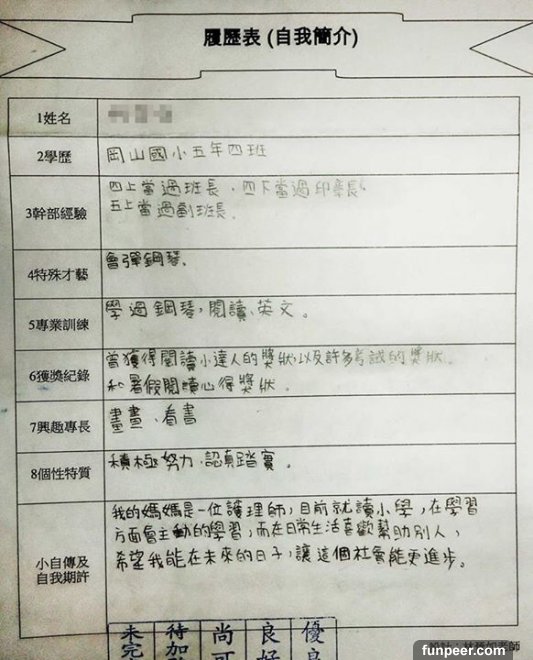 履歷表 (自我簡介)
1姓名
2學歷 岡山國小五年四班
3幹部經驗 四上當過班長,四下當過印章長,
五上當過副班長。
4特殊才藝 會彈鋼琴。
5專業訓練 學過鋼琴,閱讀、英文。
6獲獎紀錄 曾獲得閱讀小達人的獎狀,以及許多考試的獎狀、
和暑假閱讀心得獎狀。
7興趣專長 畫畫、看書
8個性特質 積極努力、認真踏實。
小自傳及
自我期許
我的媽媽是一位護理師,目前就讀小學,在學習
方面會主動的學習,而在日常生活喜歡幫助別人,
希望我能在未來的日子,讓這個社會能更進步。
優良
良好
尚可
待加
未完
老師
funpeer.com